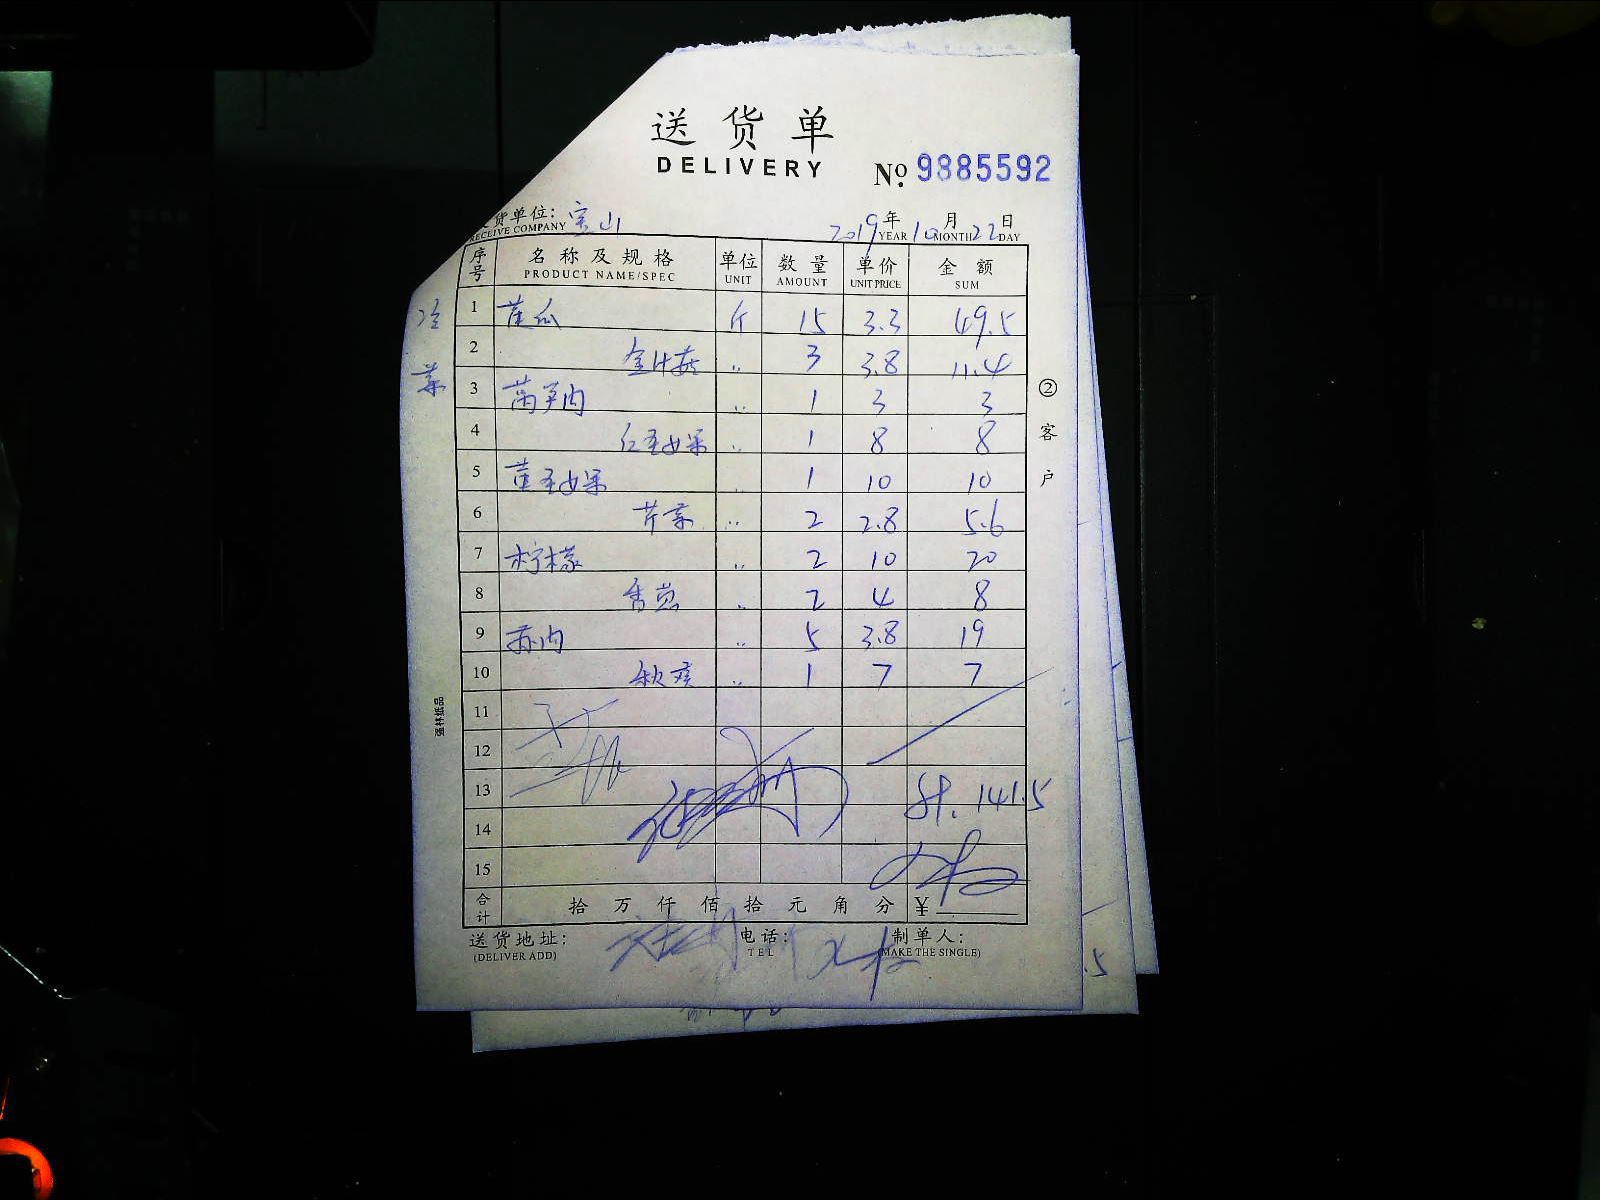 送货单
DELIVERY
No. 9885592
货单位: 宝山 2019年10月22日
RECEIVE COMPANY YEAR MONTH DAY
序号 名称及规格 单位 数量 单价 金额
PRODUCT NAME/SPEC UNIT AMOUNT UNIT PRICE SUM
冷菜
1 黄瓜 斤 15 3.3 49.5
2 金针菇 〃 3 3.8 11.4
3 莴笋肉 〃 1 3 3
4 红圣女果 〃 1 8 8
5 黄圣女果 〃 1 10 10
6 芹菜 〃 2 2.8 5.6
7 柠檬 〃 2 10 20
8 香葱 〃 2 4 8
9 〃 5 3.8 19
10 秋葵 〃 1 7 7
11
12
13 计. 141.5
14
15
合计 拾 万 仟 佰 拾 元 角 分 ¥
送货地址: 电话: 制单人:
(DELIVER ADD) TEL (MAKE THE SINGLE)
②客户
强林纸品
.5